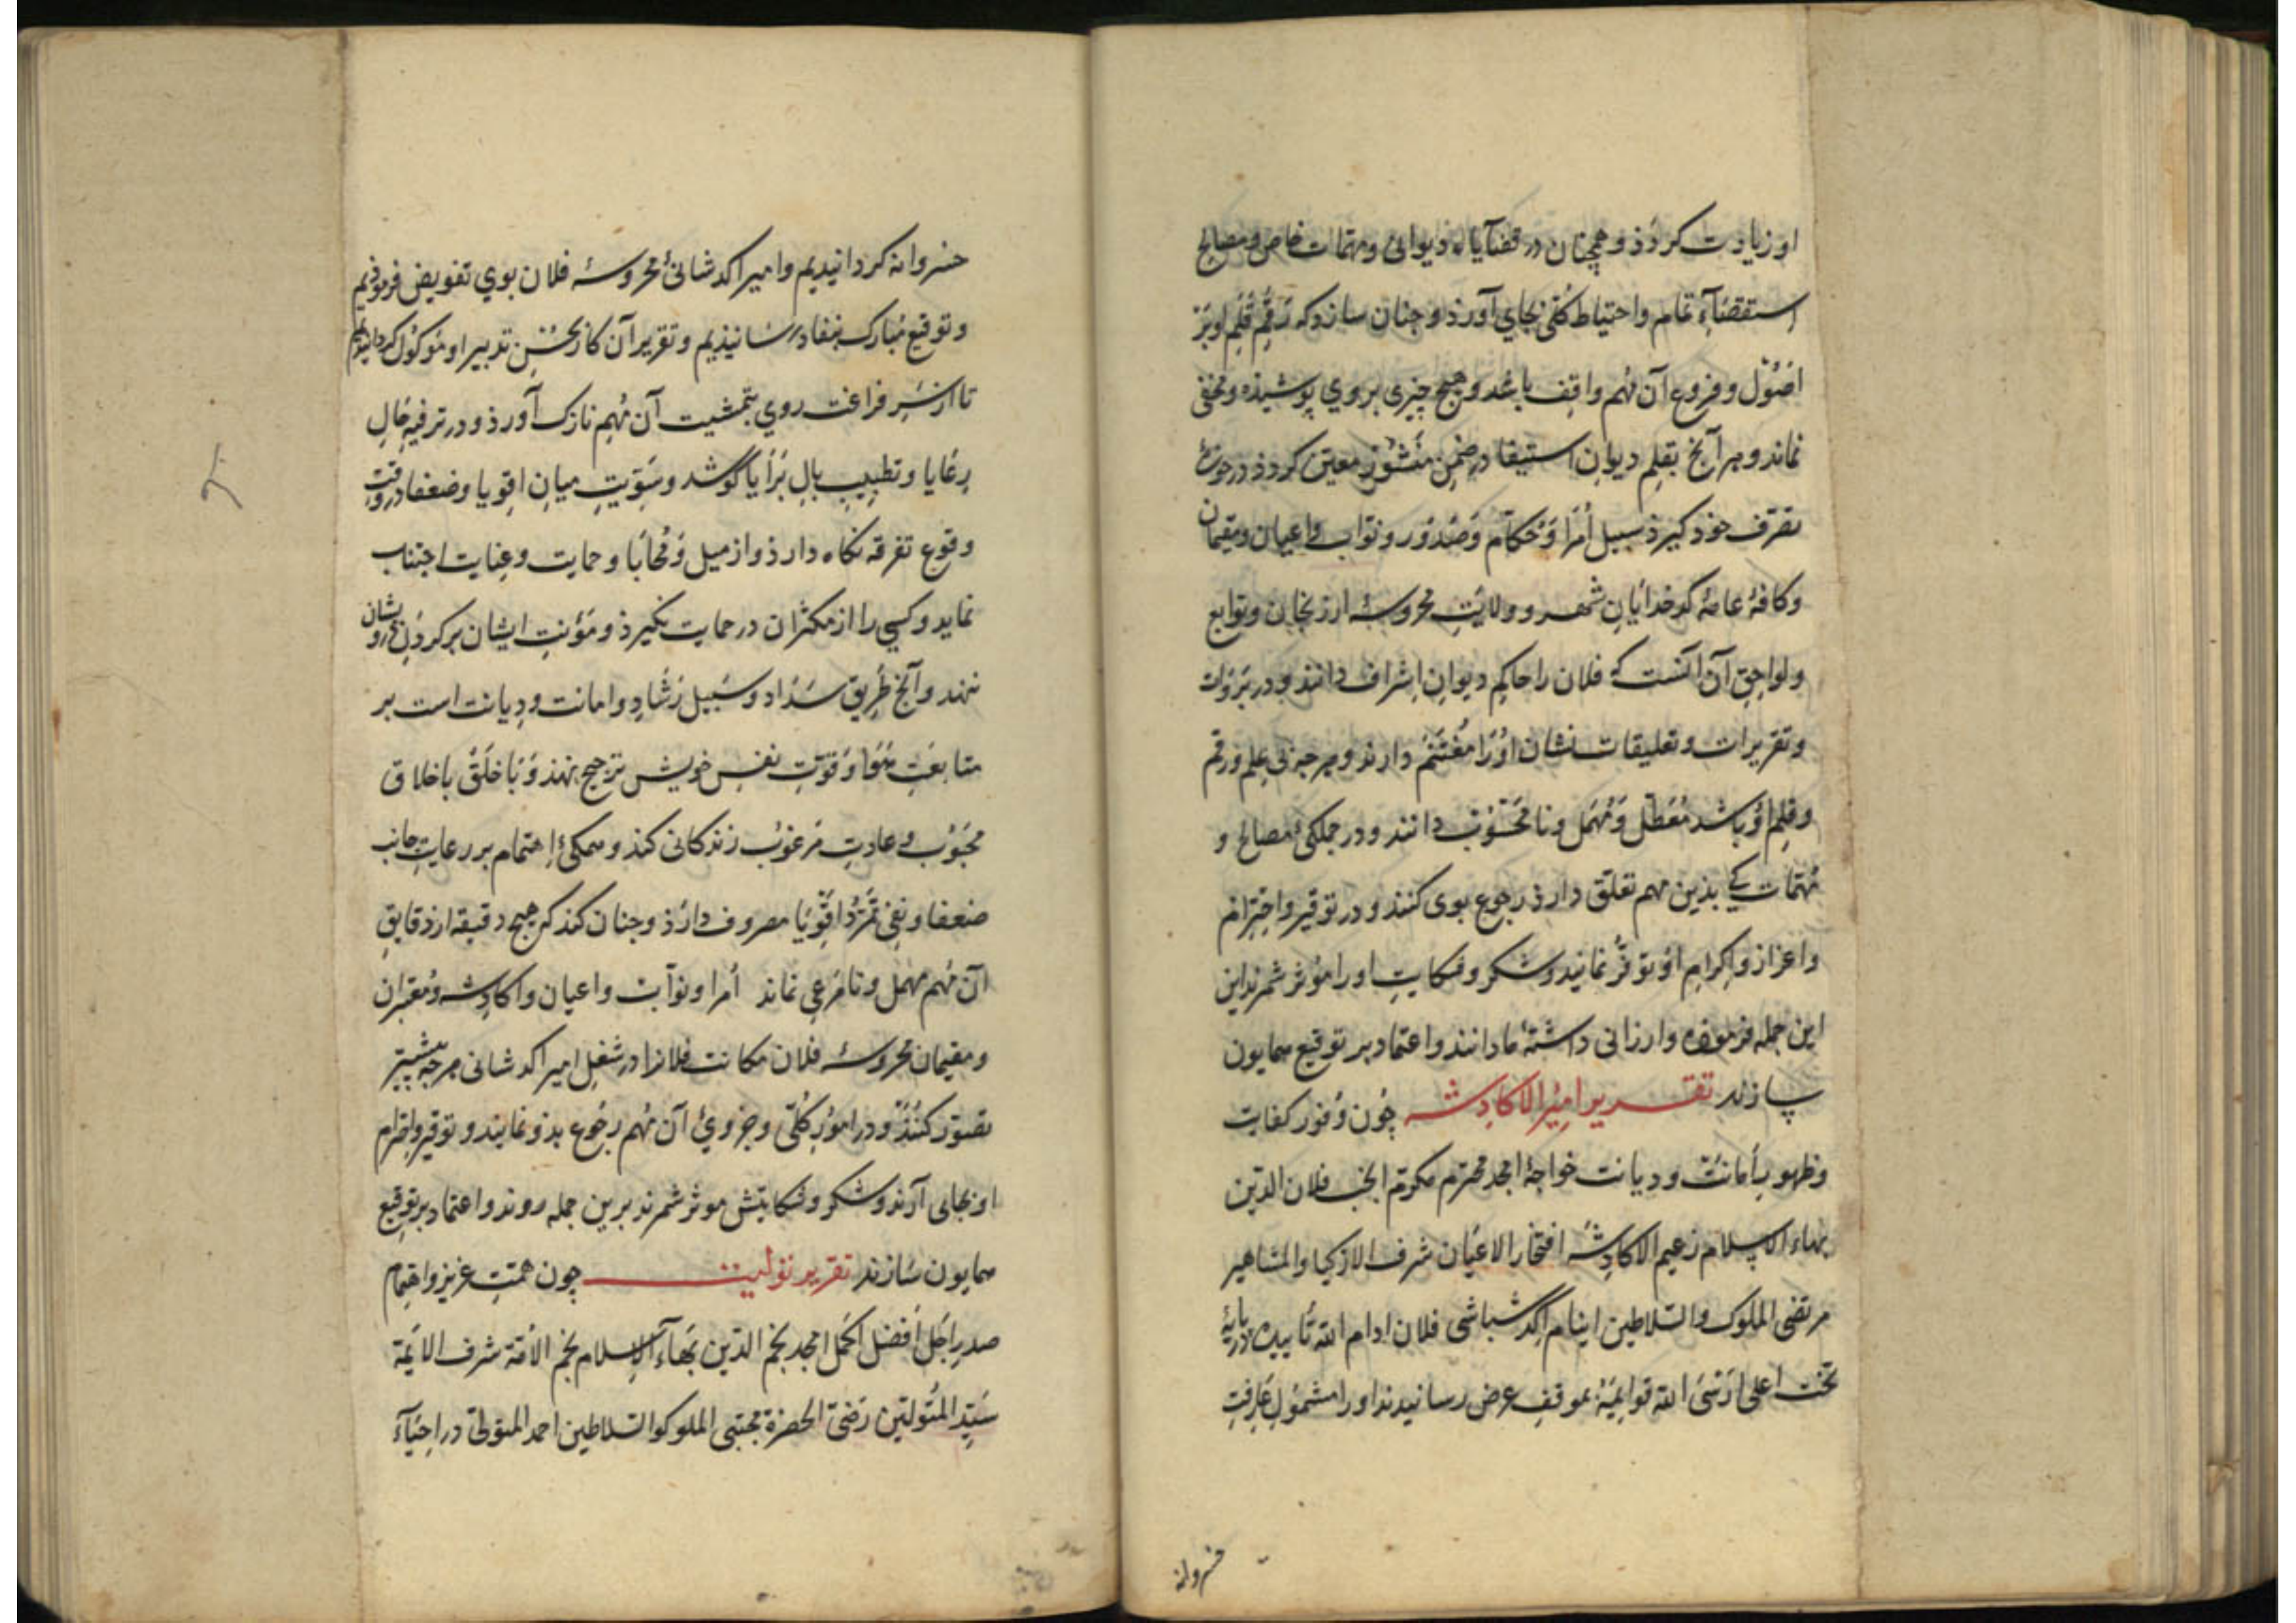 او زیادت کردذ و همچنان در قضآیاء دیوانی و مهمات خاص و مصالح
استقصآء تمام و احتیاط کلّی بجای آورذ و چنان سازد که رقم قلم او بَر
اصُوْل و فروع آن مُهم واقف باشد و هیچ چیزی بر وی پوشیذه و مخفی
نماند و هر آنچ بقلمِ دیوانِ استیفا در ضمنِ منشوْر معیّن کردذ در حوزهٔ
تصرّف خوذ کیرذ سبیل اُمَرا وَ حکّام وَ صُدُوْر و نوّاب و اعیان و مقیمان
و کافهٔ عامهٔ کوخدایانِ شهر و ولایتِ محروسهٔ ارزنجان و توابع
و لواحقِ آن آنست که فلان را حاکم دیوانِ اِشراف دانند و در بَرَوات
و تقریرات و تعلیقات نشان اوْ را مُغتنَم دارند و هر چه بی علم و رقم
و قلم اوْ باشد مُعَطّل وَ مُهمَل و نا محسُوْب دانند و در جملکی مصالح و
مُهمّات کی بذین مهم تعلّق دارذ رجوع بوی کنند و در توقیر و احترام
و اعزاز و اِکرام اوْ توفّر نمایند و شکر و شکایتِ او را موْثر شمرند این
این جمله فرموذه و ارزانی داشتهٔ ما دانند و اعتماد بر توقیع همایون
سازند تقریر امیر الاکادشه چُون وُفور کفایت
و ظهور أمانت و دیانت خواجهٔ امجد محترم مکرّم انجب فلان الدّین
بهاء الاسلام زعیم الاکادشه افتخار الاعیان شرف الازکیا و المشاهیر
مرتضی الملوک و السّلاطین اینام اکدشباشی فلان ادام الله تأییده در پایهٔ
تخت اعلی اَرْسَی الله قوایمَهٔ بموقف عرض رسانیدند او را مشمولِ عارفتِ
خسروانه
خسروانه کردانیدیم و امیر اکدشانیٔ محروسهٔ فلان بوی تفویض فرموذیم
و توقیع مُبارک بنفاد رسانیذیم و تقریر آن کار بحُسْنِ تدبیر او موکُوْل کردانیدیم
تا از سَرِ فراغت روی بتمشیت آن مُهم نازک آورذ و در ترفیهِ حالِ
رعَایا و تطییبِ بالِ بَرَایا کوشد و سَوّیتِ میانِ اقویا و ضعفا در وقتِ
وقوع تفرقه نکاه دارذ و از میل وَ مُحابَا و حمایت و عِنایت اجتناب
نماید و کسی را از مکثران در حمایت نکیرذ و مَؤنتِ ایشان بر کردنِ درویشان
ننهد و آنچ طریق سَدَاد و سَبیل رَشادِ و امانت و دِیانت است بر
متابعَتِ هَوَا وَ قوّتِ نفس خویش ترجیح نهند وَ بَا خلَقْ باخلاق
محبُوْب و عادتِ مَرغوْب زندکانی کند و همکیٔ اِهتمام بر رعایتِ جانب
ضعفا و نفی تَمَرّدُ اقْوِیَا مصروف دارَذ و چنان کند که هیچ دقیقه از دقایقِ
آن مُهم مهمل و نامَرعی نماند اُمرا و نوّاب و اعیان و اکادشه و مُعتبران
و مقیمان محروسهٔ فلان مکانت فلانرا در شغلِ امیر اکدشانی هر چه بیشتر
تصوّر کنند و در اموْرِ کُلّی و جزویٔ آن مُهم رجُوع بذو نمایند و توقیر و احترام
او بجای آرند و شکر و شکایتش موثر شمرند برین جمله روند و اعتماد بر توقیع
همایون سَازند تقریر تولیت چون همّتِ عزیز و اهتمام
صدرِ اَجَل أفضل اکمَل امجد نجم الدّین بهآء الاسلام نجم الأمّة شرف الایمّة
سَیّد المُتولّین رَضیّ الحضرة مجتبی الملوک و السّلاطین احمد المتولّی در احیَآءَ